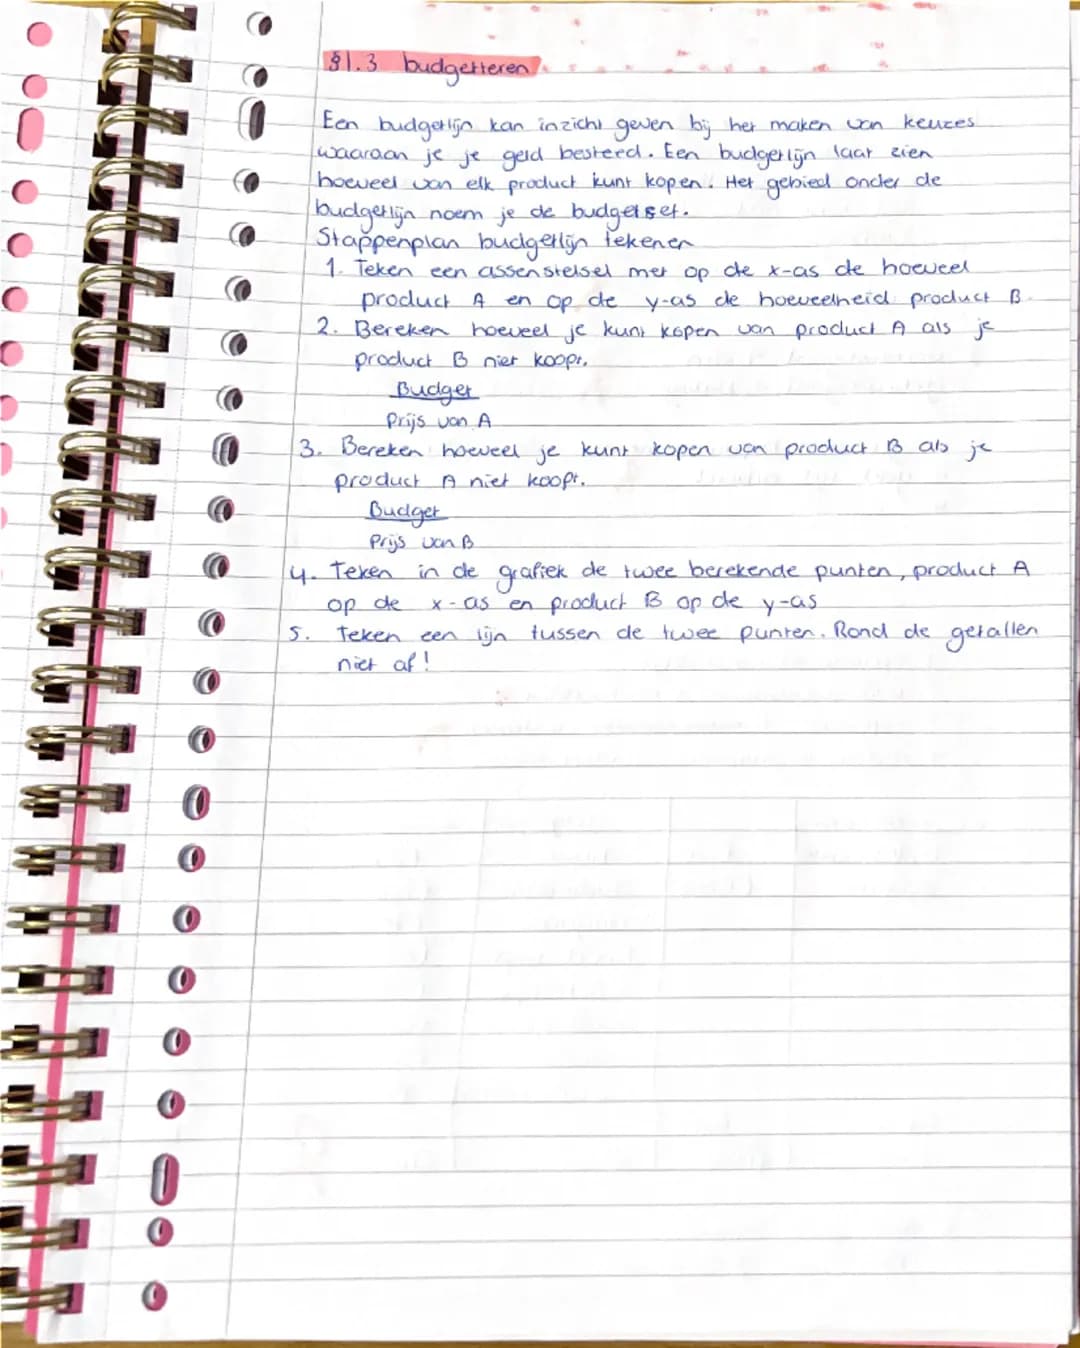 §1.3 budgetteren
Een budgetlijn kan inzicht geven bij het maken van keuzes
waaraan je je geld besteed. Een budgetlijn laat zien
hoeveel van elk product kunt kopen. Het gebied onder de
budgetlijn noem je de budgetset.
Stappenplan budgetlijn tekenen
1. Teken een assenstelsel met op de x-as de hoeveel
product A en op de y-as de hoeveelheid product B.
2. Bereken hoeveel je kunt kopen van product A als je
product B niet koopt.
Budget
Prijs van A
3. Bereken hoeveel je kunt kopen van product B als je
product A niet koopt.
Budget
Prijs van B
4. Teken in de grafiek de twee berekende punten, product A
op de x-as en product B op de y-as
5. Teken een lijn tussen de twee punten. Rond de getallen
niet af!